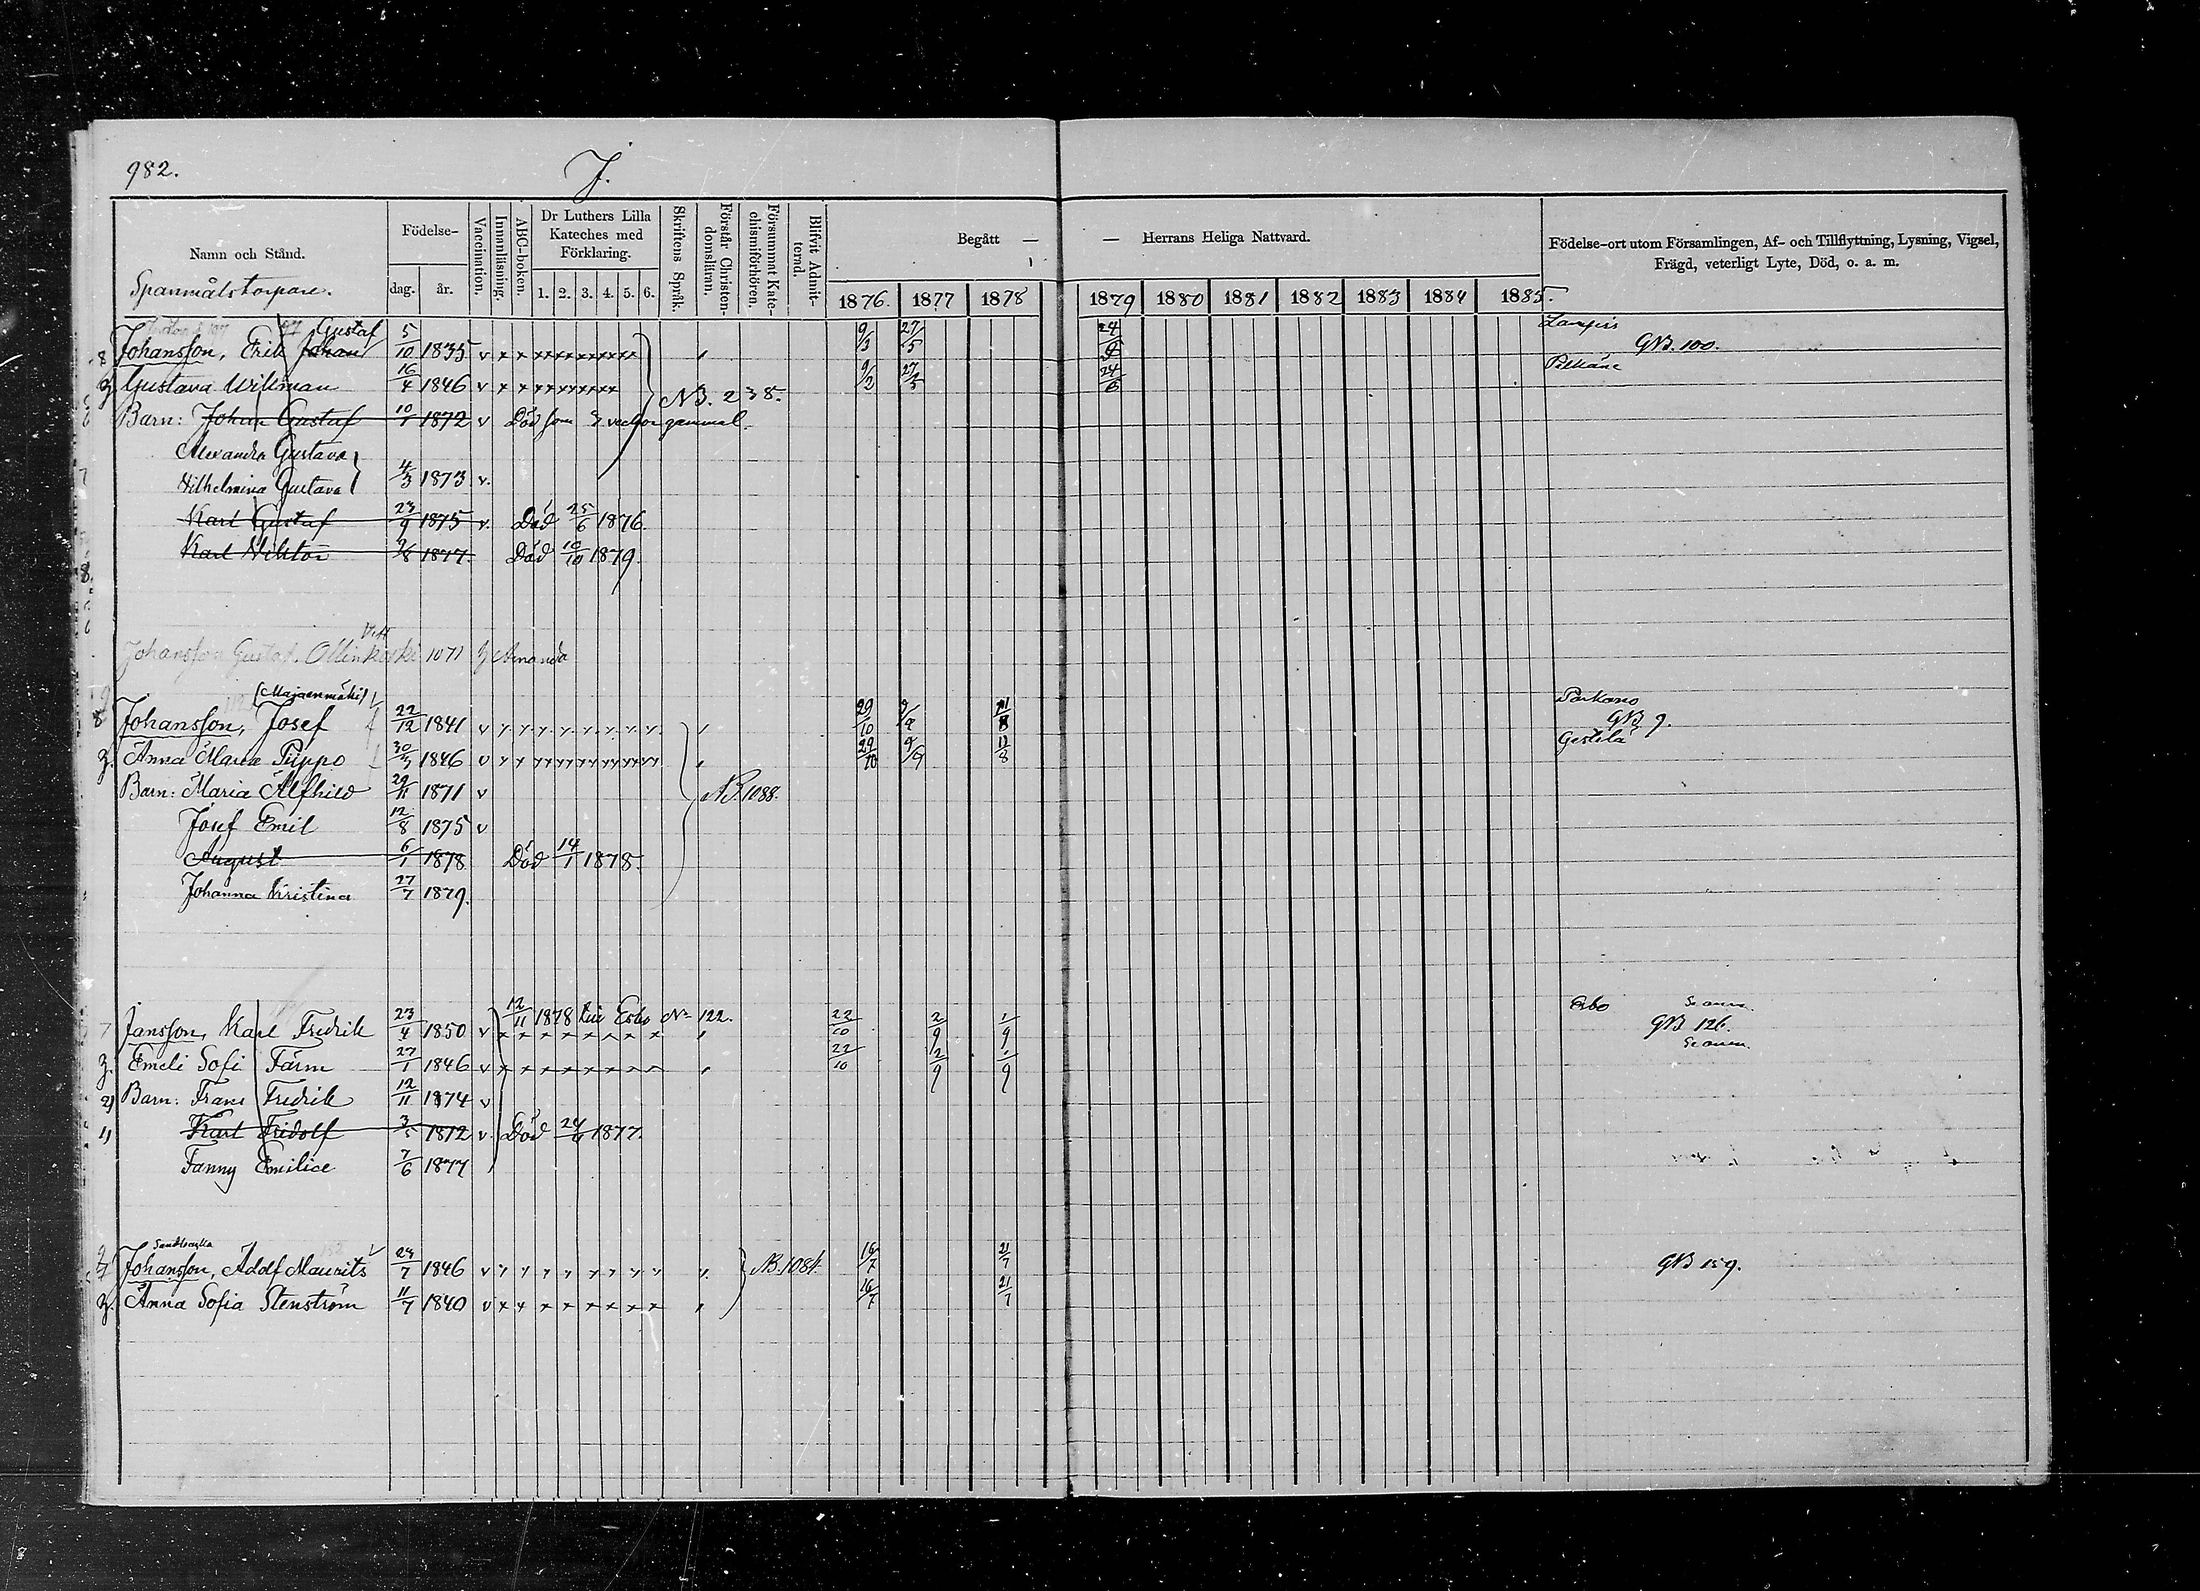 982.
J.
Namn och Stånd.
Födelse-
dag. år.
Vaccination.
Innanläsning.
ABC-boken.
Dr Luthers Lilla Kateches med Förklaring.
1. 2. 3. 4. 5. 6.
Skriftens Språk.
Förstår Christendomsläran.
Försummat Katechismiförhören.
Blifvit Admitterad.
Begått — — Herrans Heliga Nattvard.
1876. 1877 1878 1879 1880 1881 1882 1883 1884 1885.
Födelse-ort utom Församlingen, Af- och Tillflyttning, Lysning, Vigsel, Frägd, veterligt Lyte, Död, o. a. m.
Spanmålstorpare.
Gustaf Lampis
Johansson, Erik Johan 5/10 1835 v 9/3 27/5 GB. 100.
Gustava Wikman 16/4 1846 v 9/3 27/5 Pelkäne
NB. 238.
Barn: Johan Gustaf 1872 v Död som veckor gammal.
Alexandra Gustava
Vilhelmina Gustava 4/3 1873 v.
Karl Gustaf 23/9 1875 v. Död 25/6 1876.
Karl Viktor 1877. Död 10/10 1879.
Johansson Gustaf. Ollinkoski 1071 Amanda
(Majaenmäki) Parkano
Johansson, Josef 22/12 1841 v 29/10 11/8 GB 9.
Anna Maria Piippo 1846 v 29/10 9/9 11/8 Gestilä
Barn: Maria Alfhild 29/11 1871 v NB. 1088.
Josef Emil 12/8 1875 v
August 6/1 1878 Död 14/1 1878.
Johanna Kristina 27/7 1879.
12/11 1878 till Esbo No 122. Esbo
Jansson, Karl Fredrik 23/4 1850 v 22/10 2/9 1/9 GB 126.
Emeli Sofi Färm 27/1 1846 v 22/10 2/9 1/9
Barn: Frans Fredrik 12/11 1874 v
Karl Fridolf 3/5 1872 v. Död 1877.
Fanny Emilice 7/6 1877
Johansson, Adolf Maurits 1846 v NB. 1084. 16/7 21/7 GB 159.
Anna Sofia Stenström 11/7 1840 v 16/7 21/7